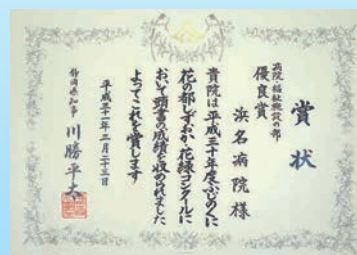 賞状
病院・福祉施設の部
優良賞
浜名病院様
貴院は平成三十年度ふじのくに
花の都しずおか花緑コンクールに
おいて頭書の成績を収められました
よってこれを賞します
平成三十一年二月二十三日
静岡県知事 川勝平太